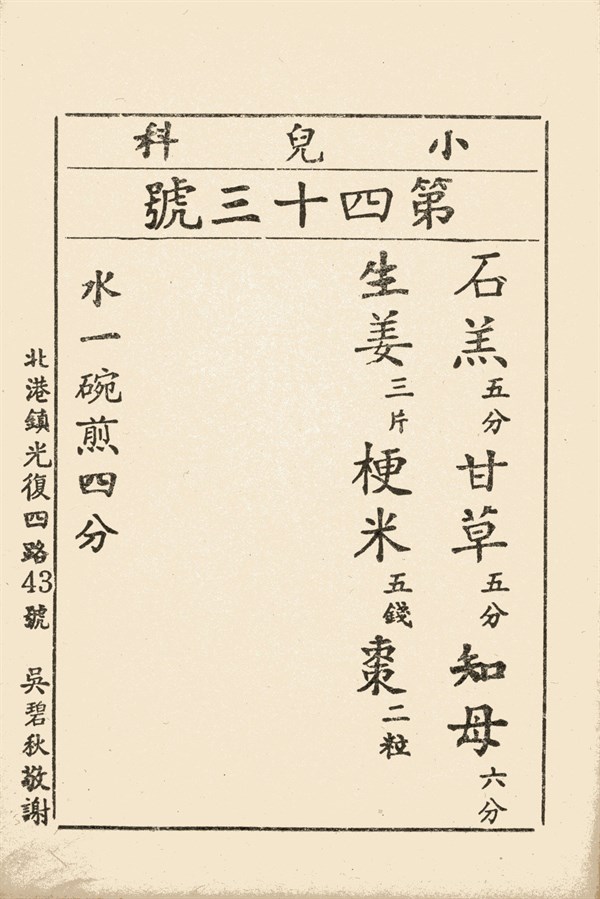 小兒科
第四十三號
石羔五分甘草五分知母六分
生姜三片梗米五錢棗二粒
水一碗煎四分
北港鎮光復四路43號 吳碧秋敬謝